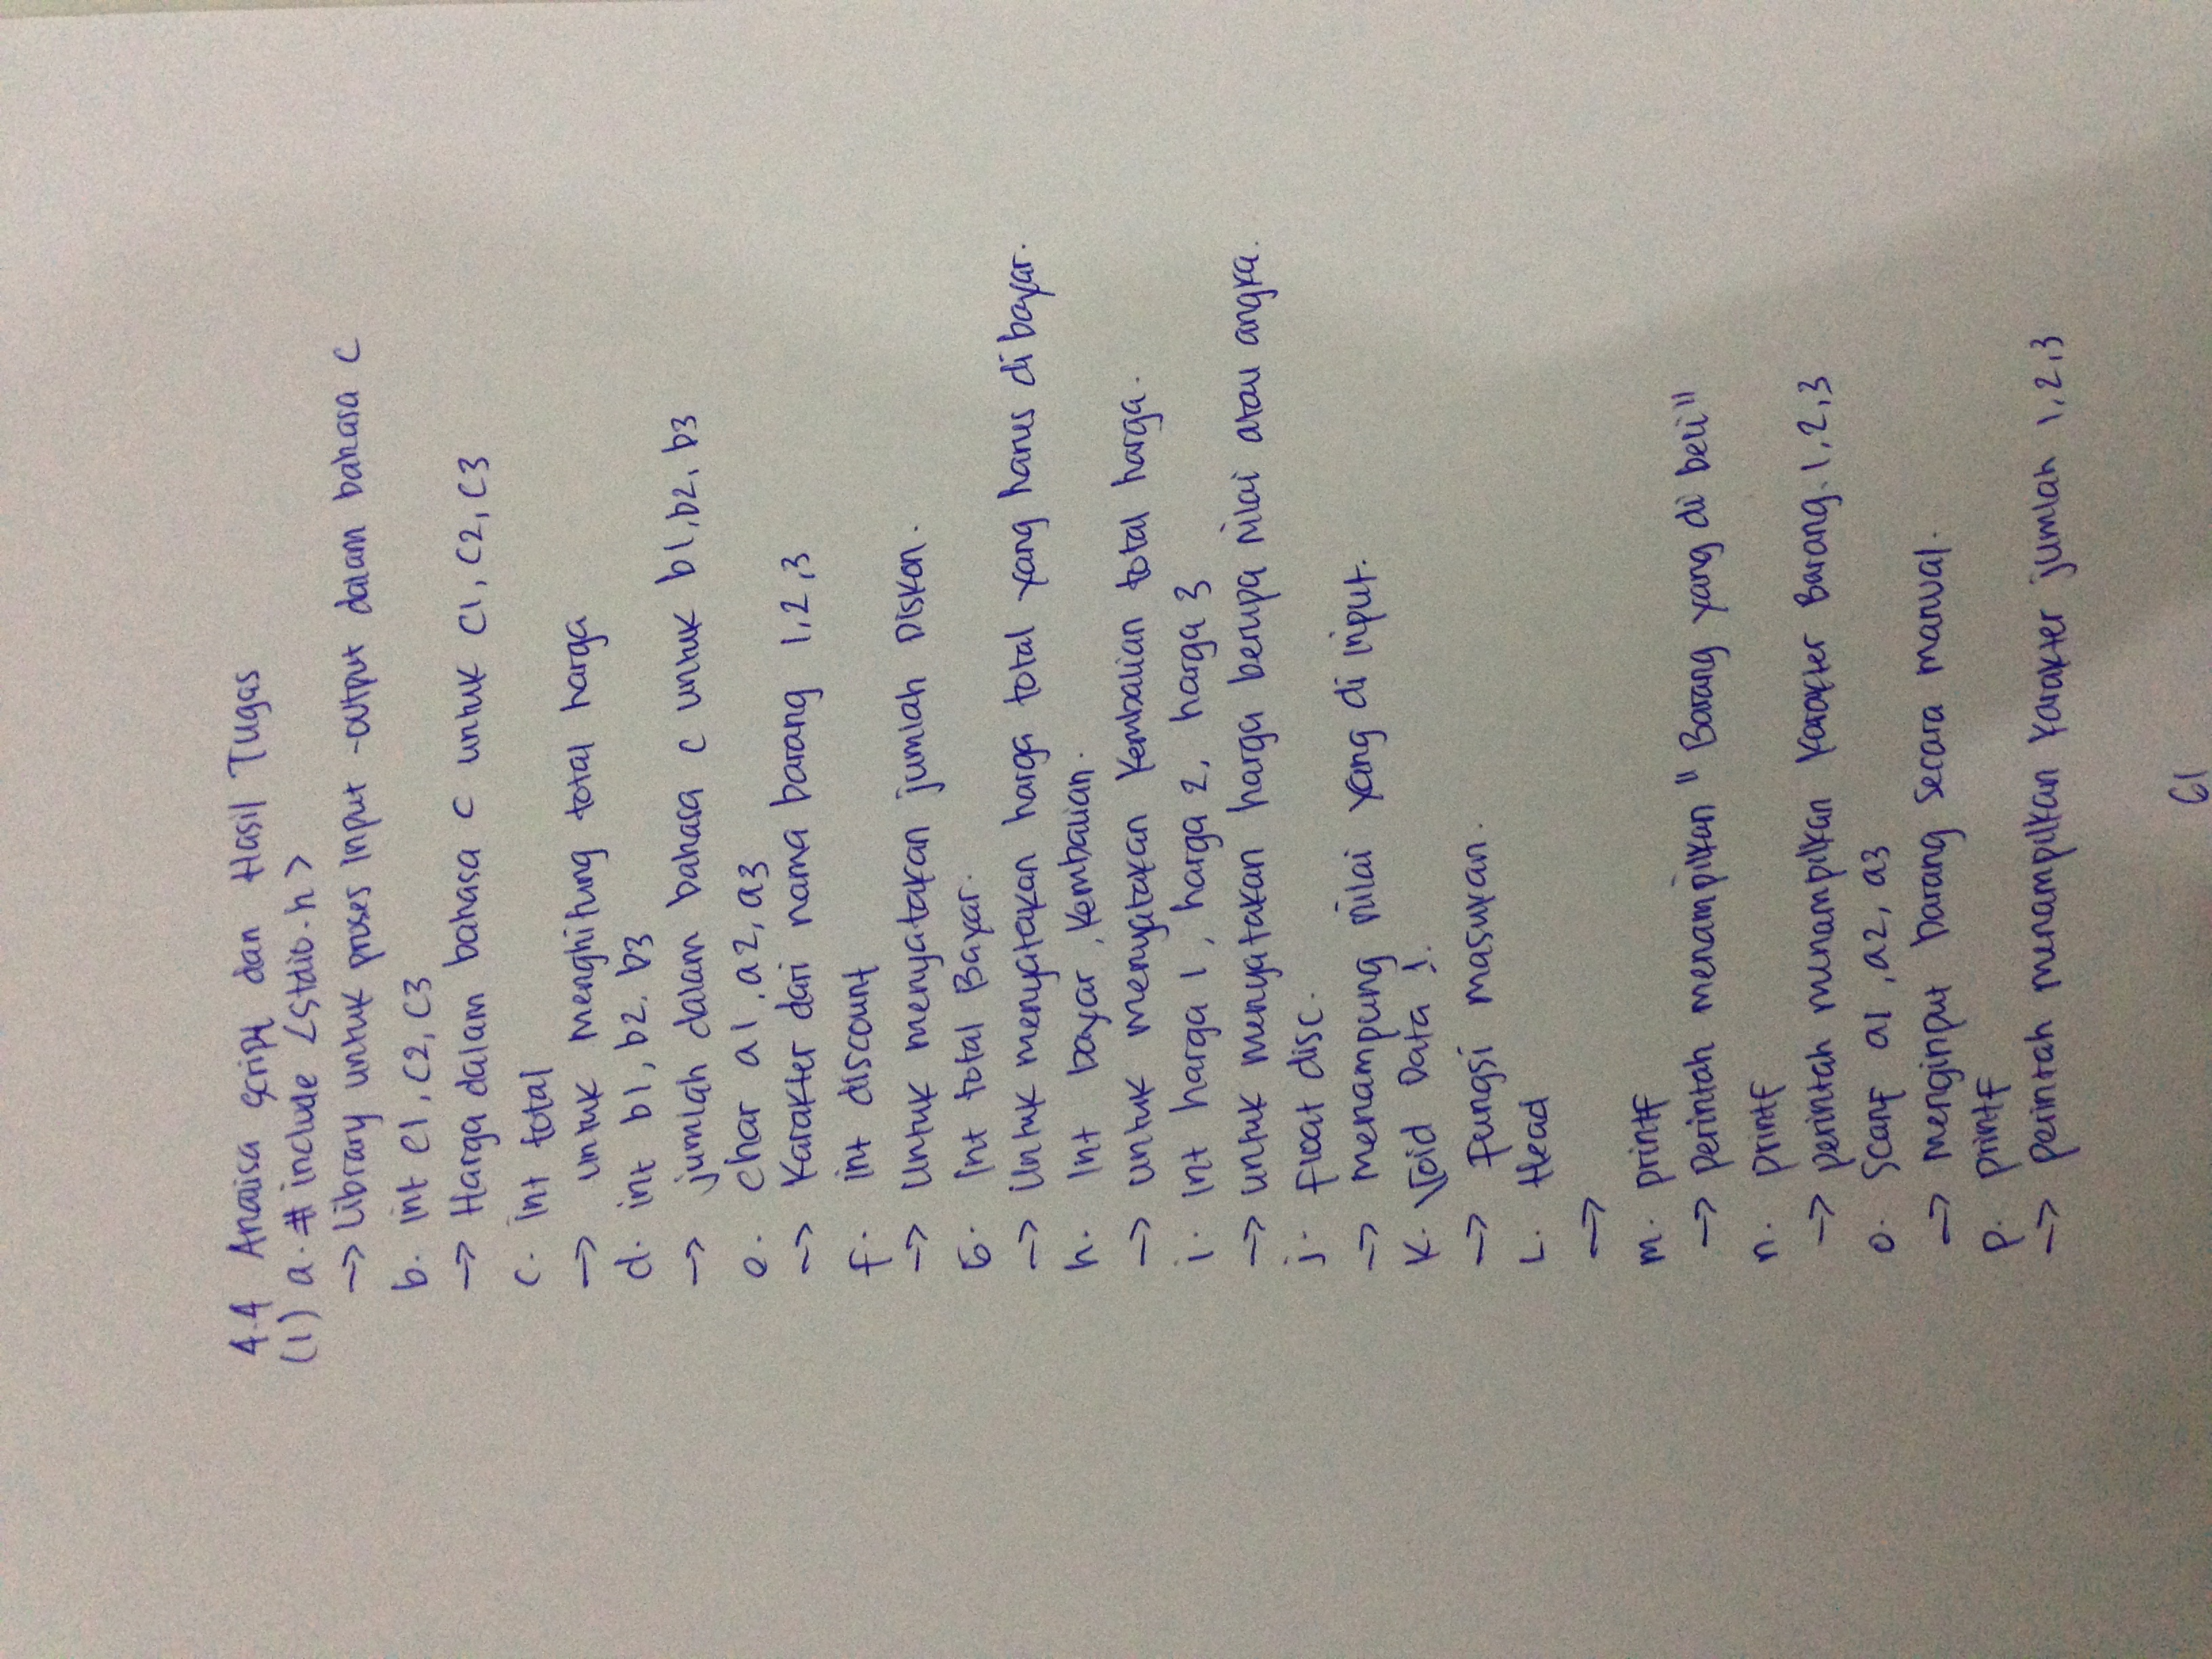 4.4 Analisa script dan Hasil Tugas
(1) a. # include <stdio.h>
-> Library untuk proses input -output dalam bahasa C
b. int c1, c2, c3
-> Harga dalam bahasa C untuk C1, C2, C3
c. int total
-> untuk menghitung total harga
d. int b1, b2. b3
-> jumlah dalam bahasa C untuk b1, b2, b3
e. char a1, a2, a3
-> Karakter dari nama barang 1,2,3
f. int discount
-> Untuk menyatakan jumlah Diskon.
G. int total Bayar.
-> Untuk menyatakan harga total yang harus di bayar.
h. Int bayar, kembalian.
-> untuk menyatakan kembalian total harga.
i. int harga 1, harga 2, harga 3
-> untuk menyatakan harga berupa nilai atau angka.
j. float disc.
-> menampung nilai yang di input.
K. Void Data 1.
-> fungsi masukan.
L. Head
->
m. printf
-> perintah menampilkan "Barang yang di beli"
n. printf
-> perintah menampilkan karakter Barang. 1,2,3
o. Scanf a1, a2, a3
-> menginput barang secara manual.
p. printf
-> perintah menampilkan karakter jumlah 1,2,3
61